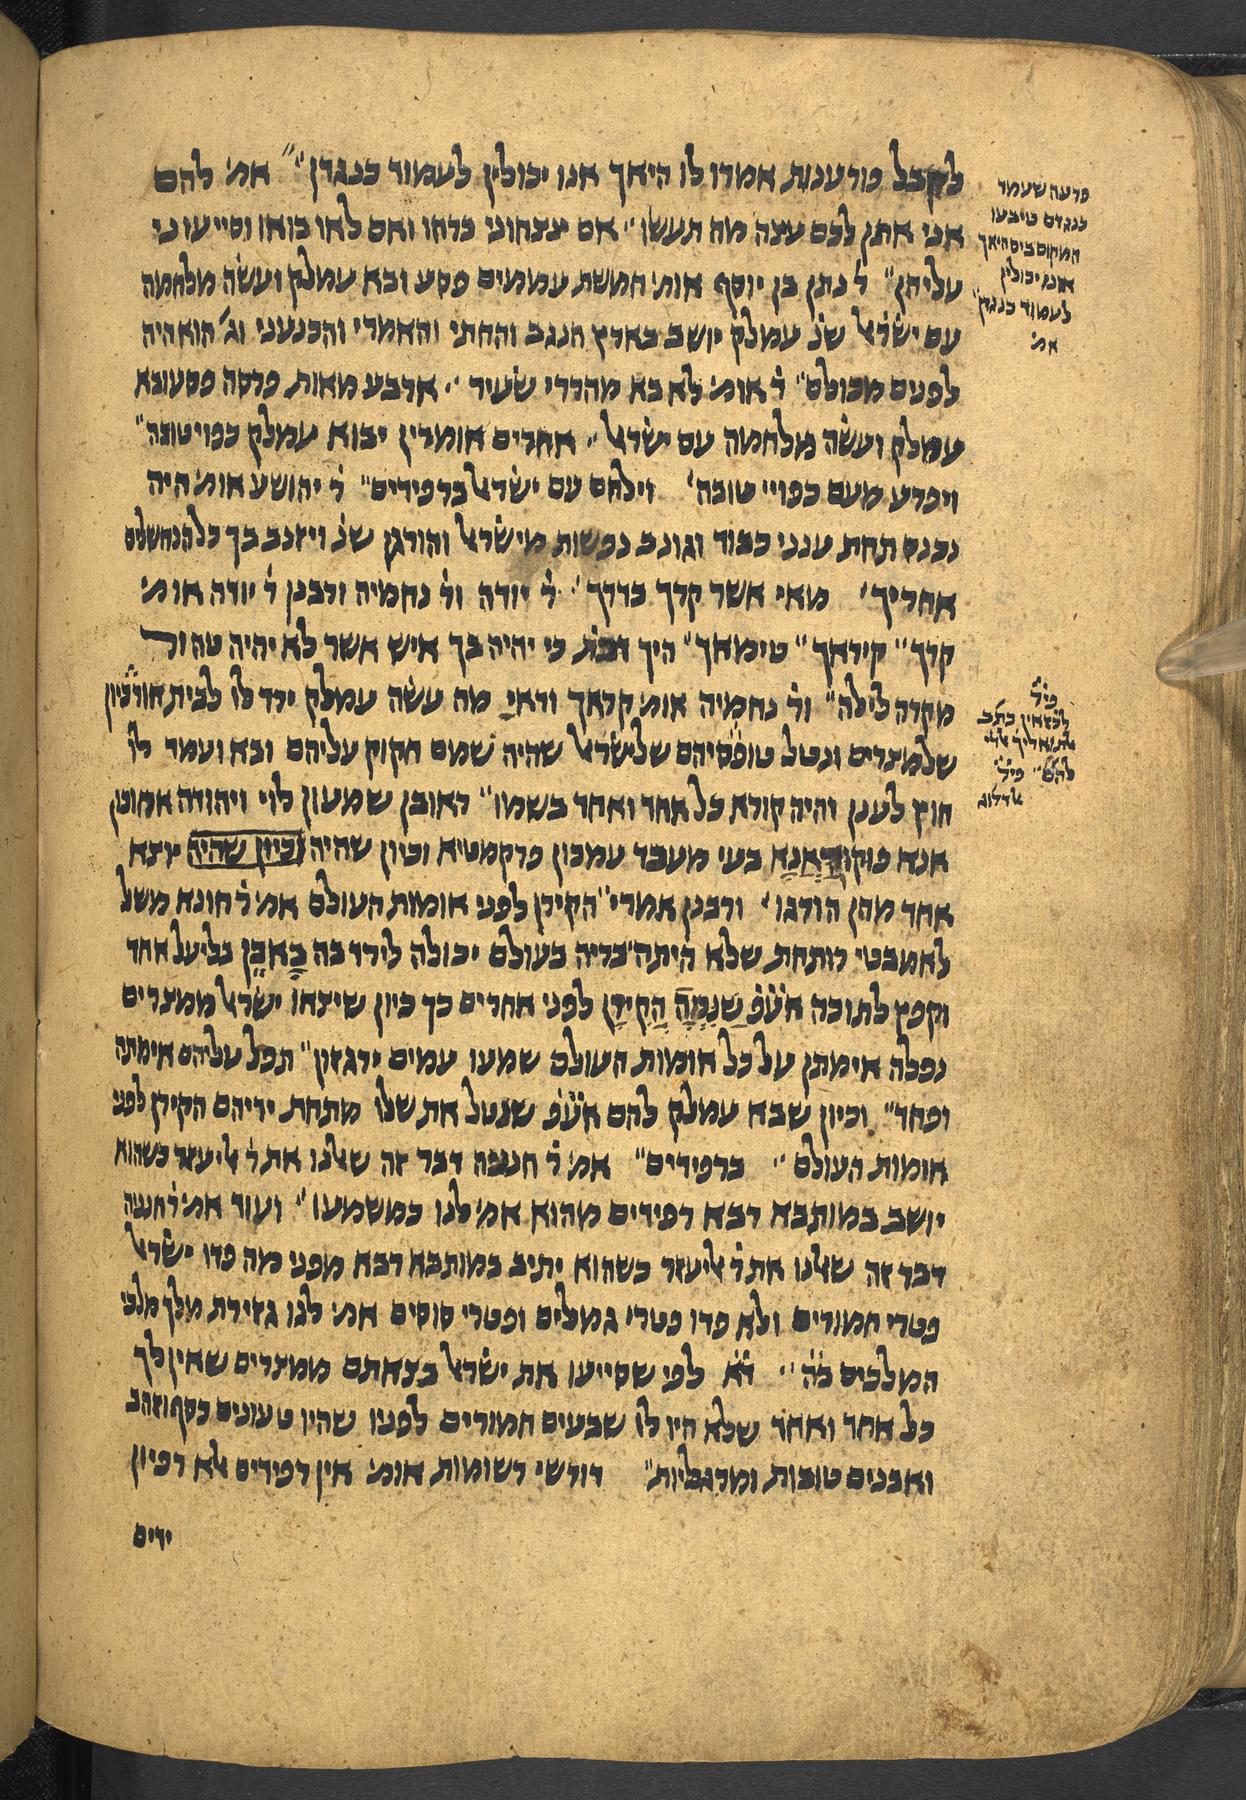 לקבל פורענות אמרו לו היאך אנו יכולין לעמוד כנגדן״ אמ׳ להם
אני אתן לכם עצה מה תעשו״ אם ינצחוני ברחו ואם לאו בואו וסייעוני
עליהן״ ר׳ נתן בן יוסף אומ׳ חמשת עממים פסע ובא עמלק ועשה מלחמה
עם ישר׳ שנ׳ עמלק יושב בארץ הנגב והחתי והאמרי והכנעני וג׳ הוא היה
לפנים מכולם״ ר׳ אומ׳ לא בא מהררי שעיר״ ארבע מאות פרסה פסע ובא
עמלק ועשה מלחמה עם ישר׳״ אחרים אומרין יבוא עמלק כפוי טובה״
ויפרע מעם כפויי טובה׳ וילחם עם ישר׳ ברפידים״ ר׳ יהושע אומ׳ היה
נכנס תחת ענני כבוד וגונב נפשות מישר׳ והורגן שנ׳ ויזנב בך כל הנחשלים
אחריך׳ מאי אשר קרך בדרך׳ ר׳ יודה ור׳ נחמיה ורבנן ר׳ יודה אומ׳
קרך״ קיראך״ טימאך״ היך כי יהיה בך איש אשר לא יהיה טהור
מקרה לילה״ ור׳ נחמיה אומ׳ קראך ודאי מה עשה עמלק ירד לו לבית
שלמצרים ונטל טופסיהם שלישר׳ שהיה שמם חקוק עליהם ובא ועמד לו
חוץ לענן והיה קורא כל אחד ואחד בשמו״ ראובן שמעון לוי ויהודה
אנא בעי מעבד עמכון פרקמטיא וכיון שהיה וכיון שהיה יוצא
אחד מהן הורגו׳ ורבנן אמרי״ הקירן לפני אומות העולם אמ׳ ר׳ חונא משל
לאמבטי רותחת שלא היתה בריה בעולם יכולה לירד בה בליעל אחד
וקפץ לתוכה אע״פ הקירן לפני אחרים כך כיון שיצאו ישר׳ ממצרים
נפלה אימתן על כל אומות העולם שמעו עמים ירגזון״ תפל עליהם אימתה
ופחד״ וכיון שבא עמלק להם אע״פ שנטל את שלו מתחת ידיהם הקירן לפני
אומות העולם״ ברפידים״ אמ׳ ר׳ חנניה דבר זה שאלנו את ר׳ אליעזר כשהוא
יושב במותבא רבא רפידים מהוא אמ׳ לנו כמשמעו׳ ועוד אמ׳ ר׳ חנניה
דבר זה שאלנו את ר׳ אליעזר כשהוא יתיב במותבא רבא מפני מה פדו ישר׳
פטרי חמורים ולא פדו פטרי גמלים ופטרי סוסים אמ׳ לנו גזירת מלך מלכי
המלכים ב׳ה׳״ ד׳א׳ לפי שסייעו את ישר׳ בצאתם ממצרים שאין לך
כל אחד ואחד שלא היו לו שבעים חמורים לפנו שהיו טעונים כסף וזהב
ואבנים טובות ומרגליות״ דורשי רשומות אומ׳ אין רפידים אלא רפיון
ידים
פרעה שעמד
כנגדם טיבעו
המקום בים היאך
אנו יכולין
לעמוד כנגדן
אמ׳